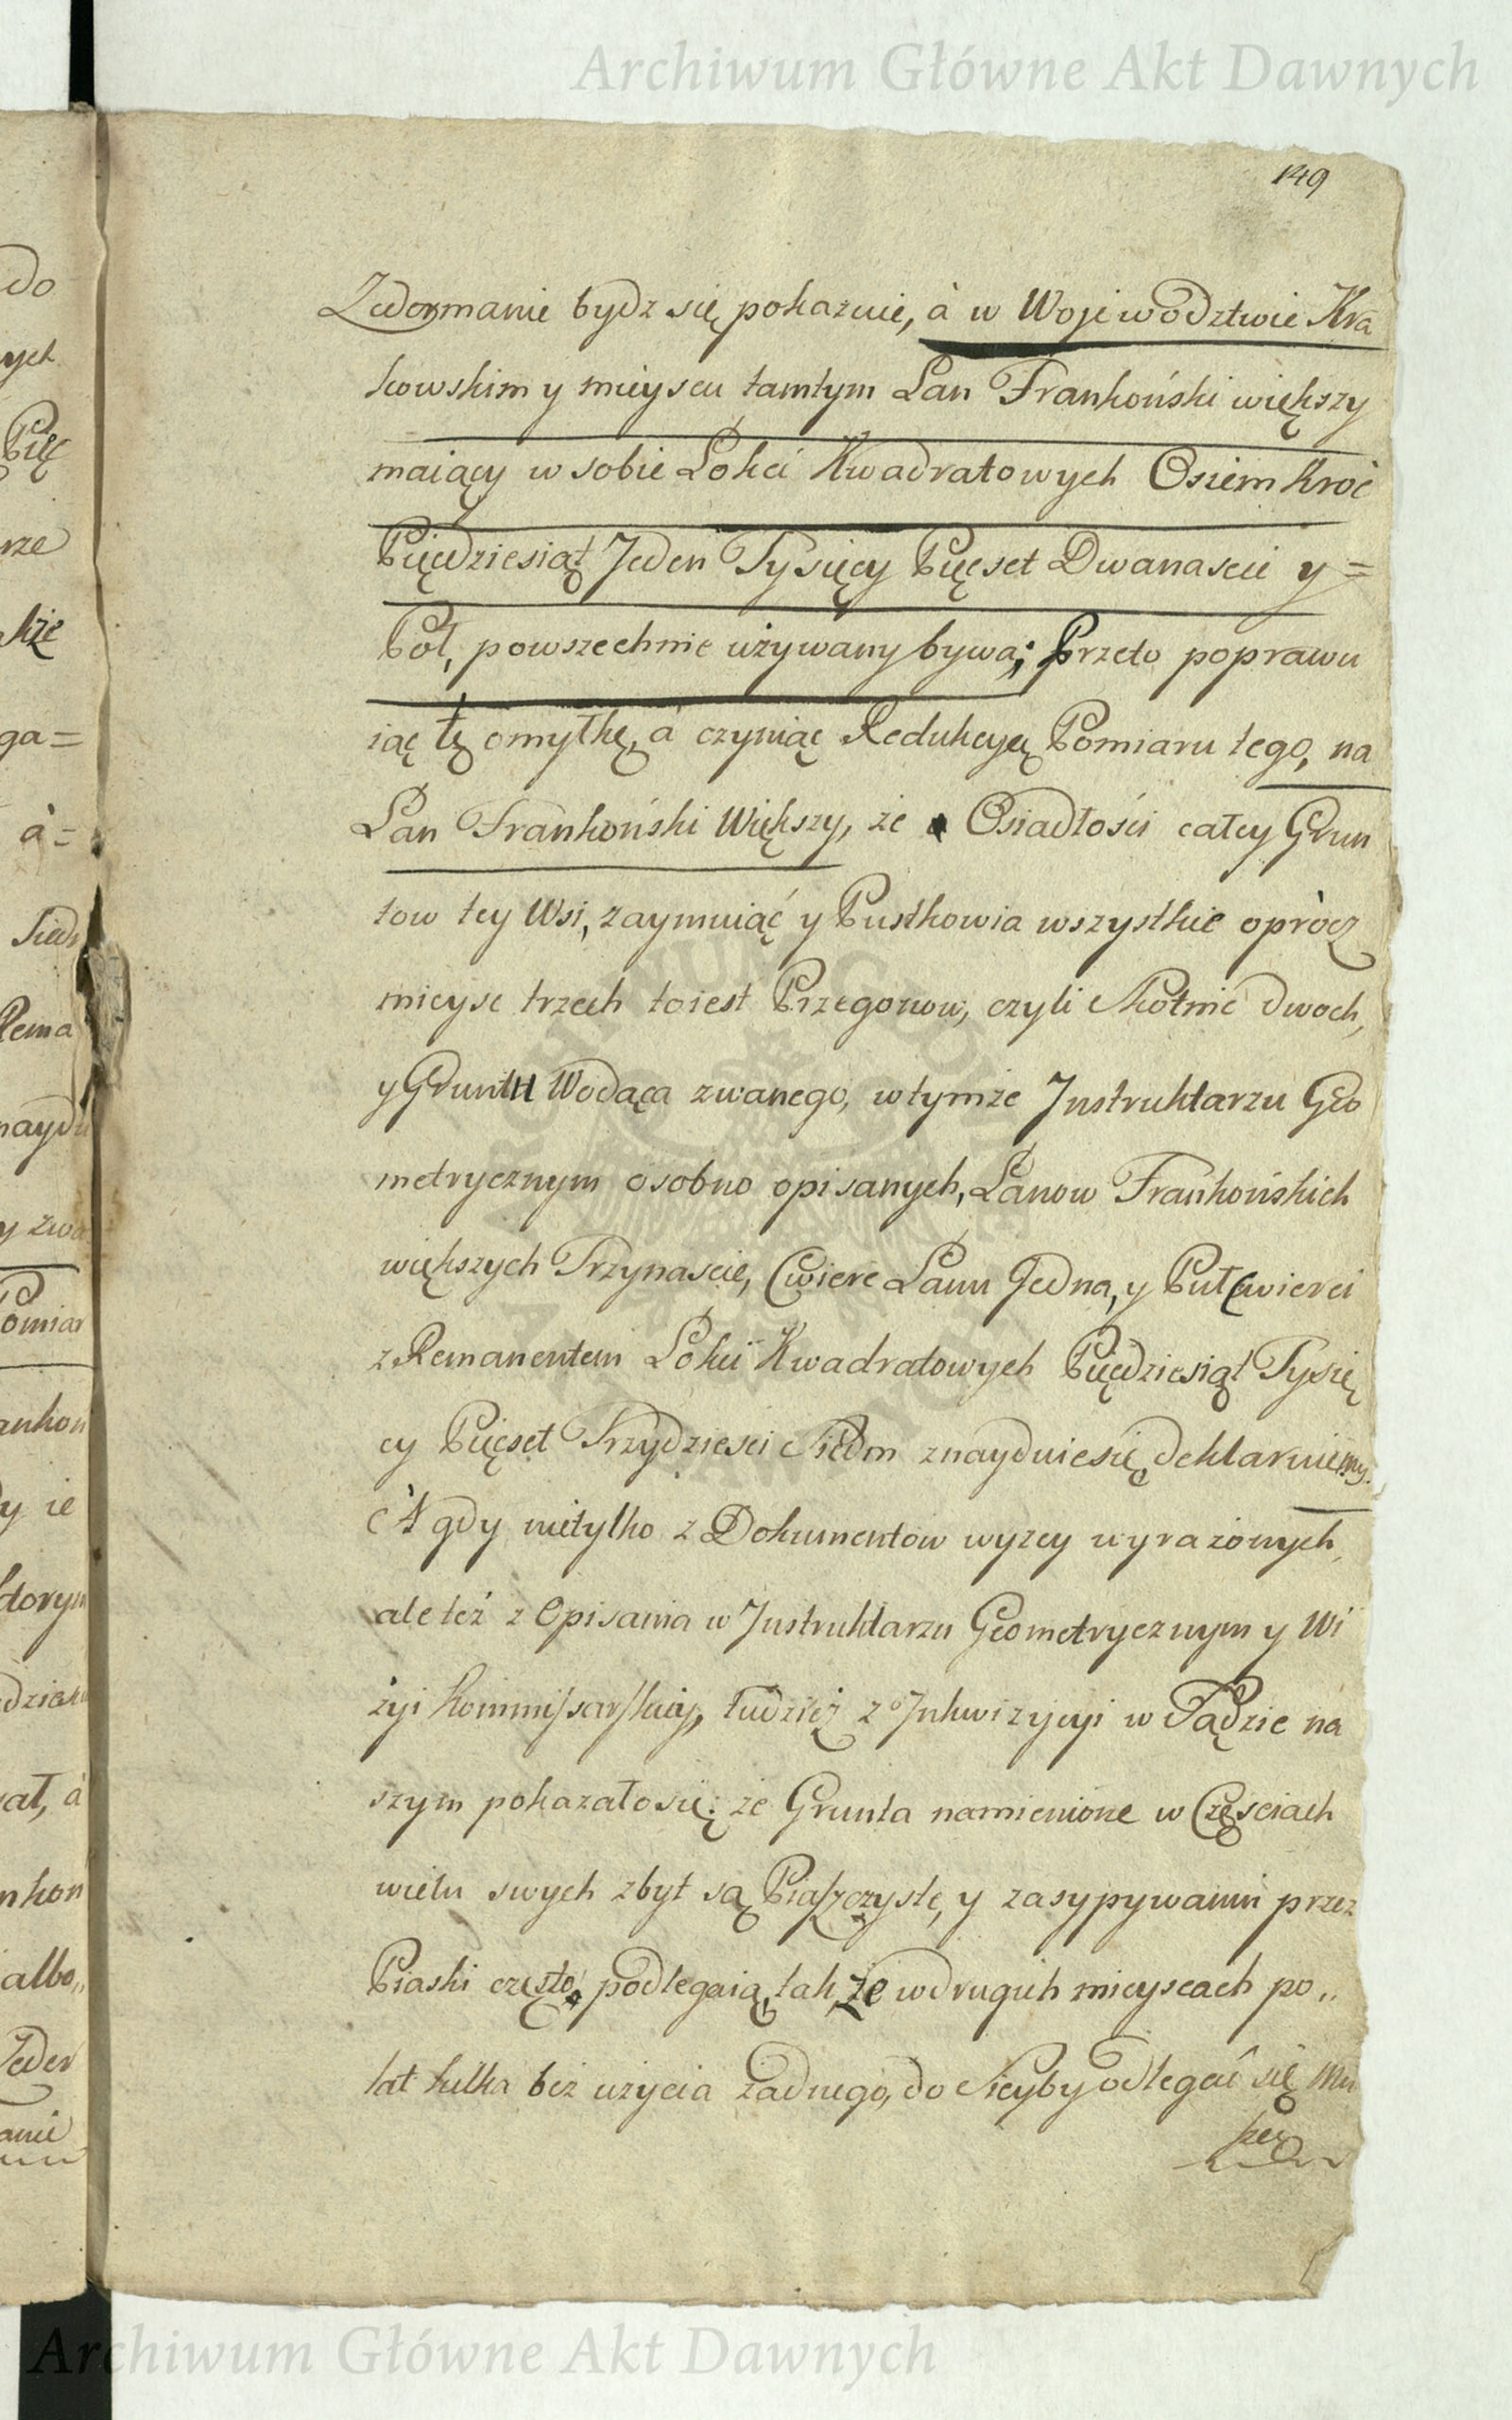 Archiwum Główne Akt Dawnych
149
Zedormanie bydz się pokazuie, à w Wojewodztwie Kra
kowskim y mieyscu tamtym Łan Frankoński większy
maiący w sobie Łokci Kwadratowych Osiem kroć
Pięcdziesiąt Jeden Tysięcy Pięcset Dwanascie y =
Poł, powszechnie używany bywa; Przeto poprawu
iąc tę omyłkę, à czyniąc Redukcyą Pomiaru tego, na
Łan Frankoński Większy, że Osiadłości całey Grun
tow tey Wsi, zaymuiąć y Pustkowia wszystkie opròcz
mieysc trzech toiest Przegonow, czyli Skotnic dwoch,
y Gruntu Wodąca zwanego, w tymże Instruktarzu Geo
metrycznym osobno opisanych, Łanow Frankońskich
większych Trzynascie, Cwierc Łanu Jedna, y Puł Cwierci
z Remanentem Łokci Kwadratowych Pięcdziesiąt Tysię
cy Pięcset Trzydziesci Siedm znayduie się, deklaruiemy.
A gdy nietylko z Dokumentow wyzey wyrażonych,
ale też z Opisania w Instruktarzu Geometrycznym y Wi
zyi Kommissarskiey, tudzież z Inkwizycyi w Sądzie na
szym pokazało się: że Grunta namienione w Częsciach
wielu swych zbyt są Piaszczyste, y zasypywaniu przez
Piaski często podlegaią, tak, że w drugich mieyscach po„
lat kilka bez użycia żadnego, do Sieyby odlegać się mu
szą
do
ych
Pięc
rze
kże
ga=
à=
Siedm
Rema
naydu
y zwa
Pomiar
ankon
y ie
ktorym
ał, à
nkon
albo„
Jeden
anie
Archiwum Główne Akt Dawnych